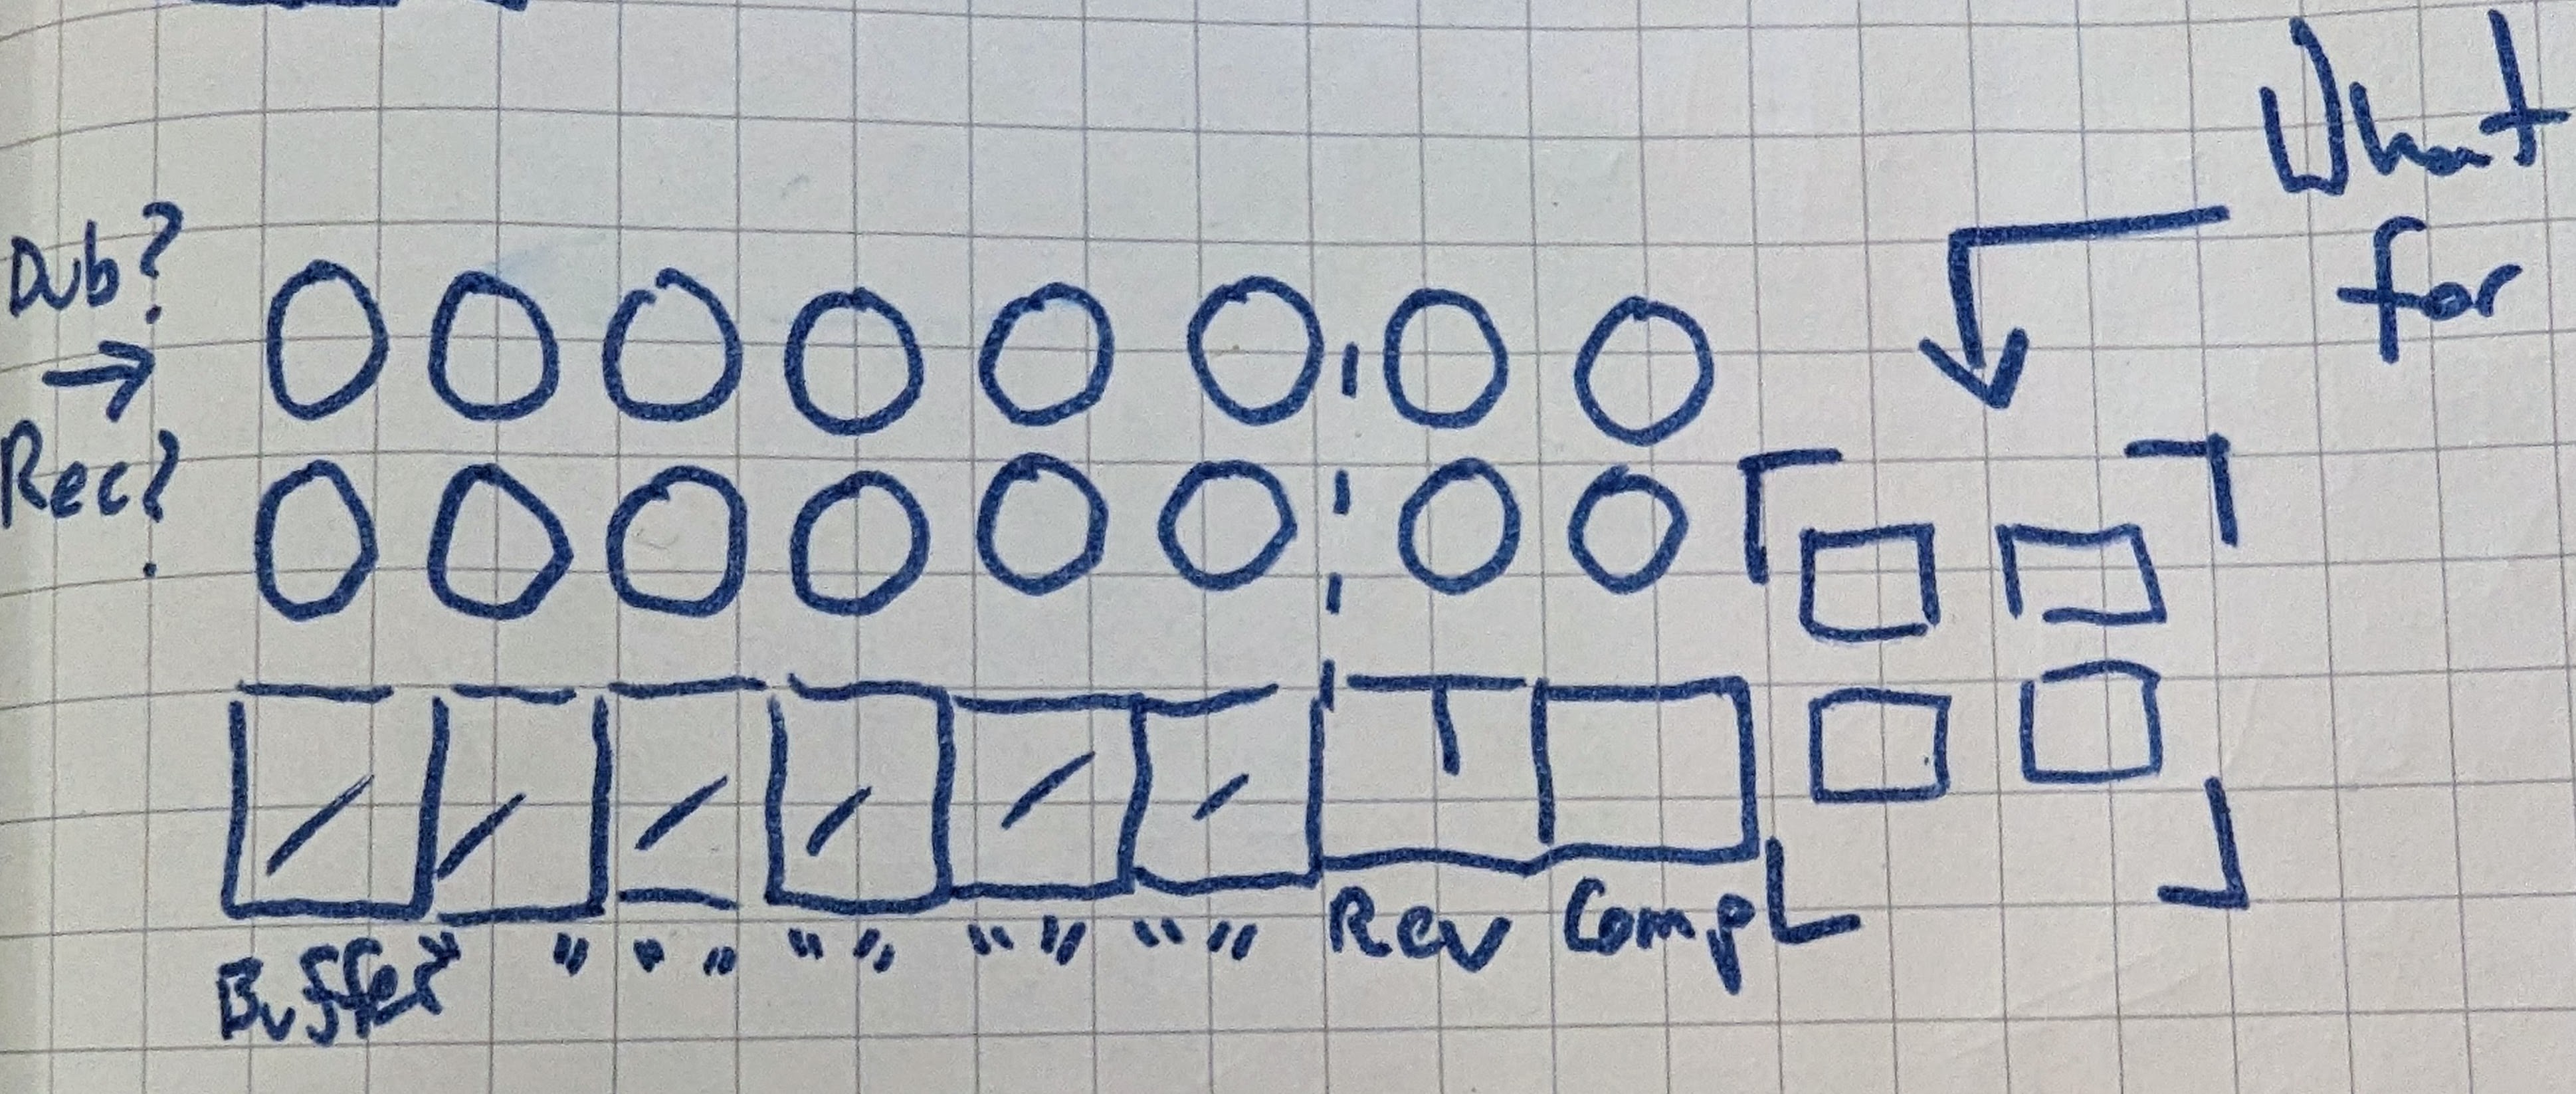 What
for
Dub?
Rec?
Buffer " " " " " " " " " " Rev Compl